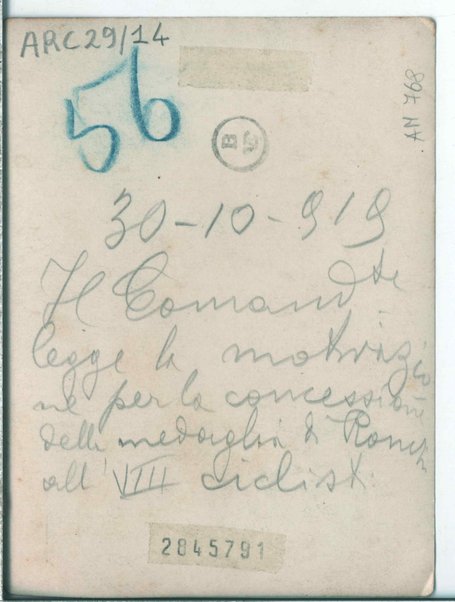 ARC29/14
56
AN 768
B
30-10-919
Il Comand.te
legge la motivaz
io
ne per la concessione
della medaglia di Ronchi
all' VIII ciclisti
2845791